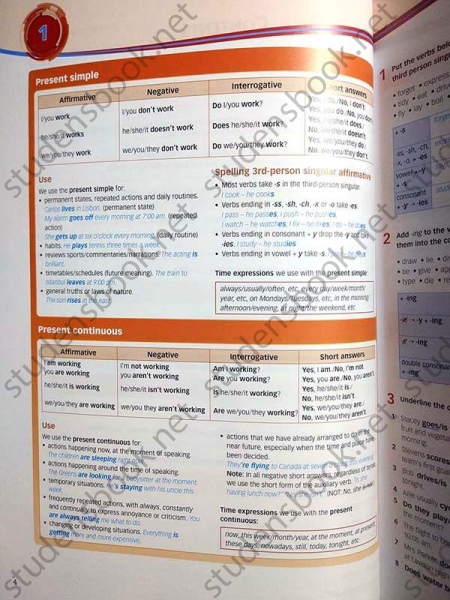 1
Present simple
Affirmative Negative Interrogative Short answers
I/you work I/you don't work Do I/you work? Yes, I/you do./No, I/you don't.
he/she/it works he/she/it doesn't work Does he/she/it work? Yes, he/she/it does.
No, he/she/it doesn't.
we/you/they work we/you/they don't work Do we/you/they work? Yes, we/you/they do.
No, we/you/they don't.
Use
We use the present simple for:
• permanent states, repeated actions and daily routines.
Carlos lives in Lisbon. (permanent state)
My alarm goes off every morning at 7:00 am. (repeated
action)
She gets up at six o'clock every morning. (daily routine)
• habits. He plays tennis three times a week.
• reviews sports/commentaries/narrations. The acting is
brilliant.
• timetables/schedules (future meaning). The train to
Istanbul leaves at 9:00 am.
• general truths or laws of nature.
The sun rises in the east.
Spelling 3rd-person singular affirmative
• Most verbs take -s in the third person singular.
I cook – he cooks
• Verbs ending in -ss, -sh, -ch, -x or -o take -es.
I pass – he passes, I push – he pushes,
I watch – he watches, I fix – he fixes, I do – he does
• Verbs ending in consonant + y drop the -y and take
-ies. I study – he studies
• Verbs ending in vowel + y take -s.
Time expressions we use with the present simple:
always/usually/often, etc, every day/week/month/
year, etc, on Mondays, etc, in the morning/
afternoon/evening, at the weekend, etc
Present continuous
Affirmative Negative Interrogative Short answers
I am working I'm not working Am I working? Yes, I am./No, I'm not.
you are working you aren't working Are you working? Yes, you are./No, you aren't.
he/she/it is working he/she/it isn't working Is he/she/it working? Yes, he/she/it is./
No, he/she/it isn't.
we/you/they are working we/you/they aren't working Are we/you/they working? Yes, we/you/they are./
No, we/you/they aren't.
Use
We use the present continuous for:
• actions happening now, at the moment of speaking.
The children are sleeping right now.
• actions happening around the time of speaking.
The Greens are looking for a babysitter at the moment.
• temporary situations. is staying with his uncle this
week.
• frequently repeated actions, with always, constantly
and continually, to express annoyance or criticism. You
are always telling me what to do.
• changing or developing situations. Everything is
getting more and more expensive.
• actions that we have already arranged to do in the
near future, especially when the time and place has
been decided.
They're flying to Canada at seven
Note: in all negative short answers, regardless of tense,
we use the short form of the auxiliary verb. 'Is she
having lunch now?' (NOT: No, she is
Time expressions we use with the present
continuous:
now, this week/month/year, at the moment, at present,
these days, nowadays, still, today, tonight, etc
4
1 Put the verbs
third person
• forget • express
• tidy • eat
• fly • lay • boil
-s
-ss, -sh, -ch,
-x, -o, + -es
vowel + y
-s
consonant
-ies
2 Add -ing to the
them into the
• draw • lie
• be • give
• type • die
+ -ing
-ing
-ie -y + -ing
double consonant
+ -ing
3 Underline the
1 Stacey goes/is
fruit and
morning.
2 Stevens scores
team's first goal
3 Bob drives/is
tonight.
4 Julie usually
5 Do they play
the moment?
6 The flight to
7 Mrs
8 Does water
studensbook.net